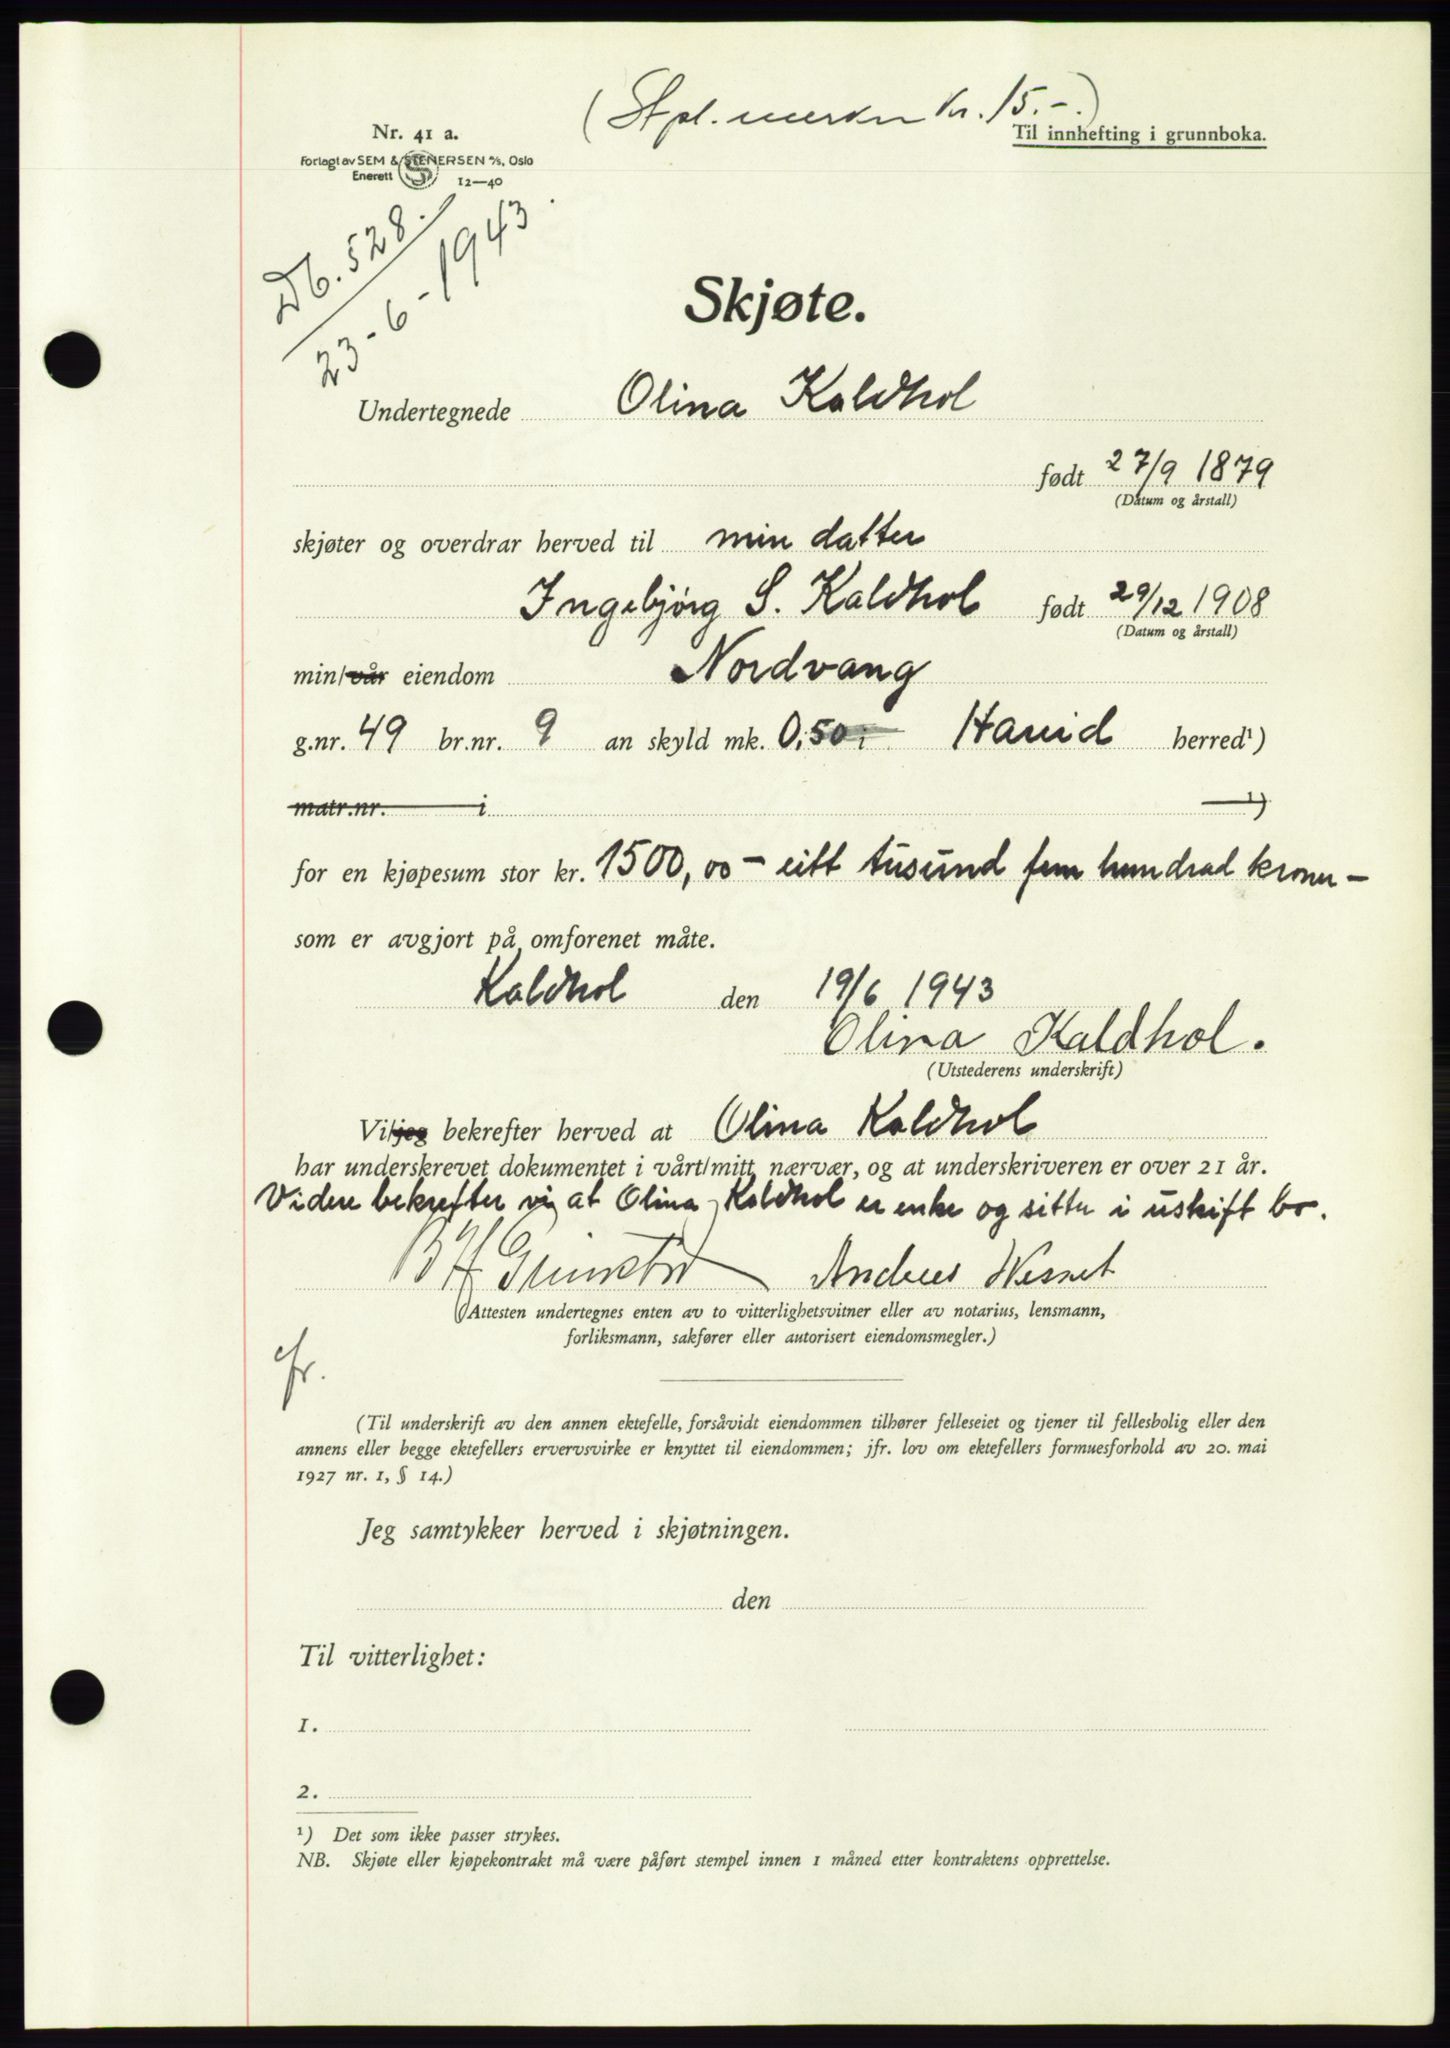 (Stpl. merker kr. 15.-.)
Nr. 41 a.
Til innhefting i grunnboka.
Forlagt av SEM & STENERSEN A/S, Oslo
Enerett
12—40
Db. 528.
23-6-1943.
Skjøte.
Undertegnede Olina Kaldhol
født 27/9 1879
(Datum og årstall)
skjøter og overdrar herved til min datter
Ingebjørg S. Kaldhol født 29/12 1908
(Datum og årstall)
min/vår eiendom Nordvang
g.nr. 49 br.nr. 9 an skyld mk. 0,50 i Hareid herred¹)
matr.nr. i ¹)
for en kjøpesum stor kr. 1500,00 - eitt tusund fem hundrad kroner -
som er avgjort på omforenet måte.
Kaldhol den 19/6 1943
Olina Kaldhol.
(Utstederens underskrift)
Vi/jeg bekrefter herved at Olina Kaldhol
har underskrevet dokumentet i vårt/mitt nærvær, og at underskriveren er over 21 år.
Videre bekrefter vi at Olina Kaldhol er enke og sitter i uskift bo.
B H Grimstad Andreas
(Attesten undertegnes enten av to vitterlighetsvitner eller av notarius, lensmann,
forliksmann, sakfører eller autorisert eiendomsmegler.)
(Til underskrift av den annen ektefelle, forsåvidt eiendommen tilhører felleseiet og tjener til fellesbolig eller den
annens eller begge ektefellers ervervsvirke er knyttet til eiendommen; jfr. lov om ektefellers formuesforhold av 20. mai
1927 nr. 1, § 14.)
Jeg samtykker herved i skjøtningen.
den
Til vitterlighet:
1.
2.
¹) Det som ikke passer strykes.
NB. Skjøte eller kjøpekontrakt må være påført stempel innen 1 måned etter kontraktens opprettelse.